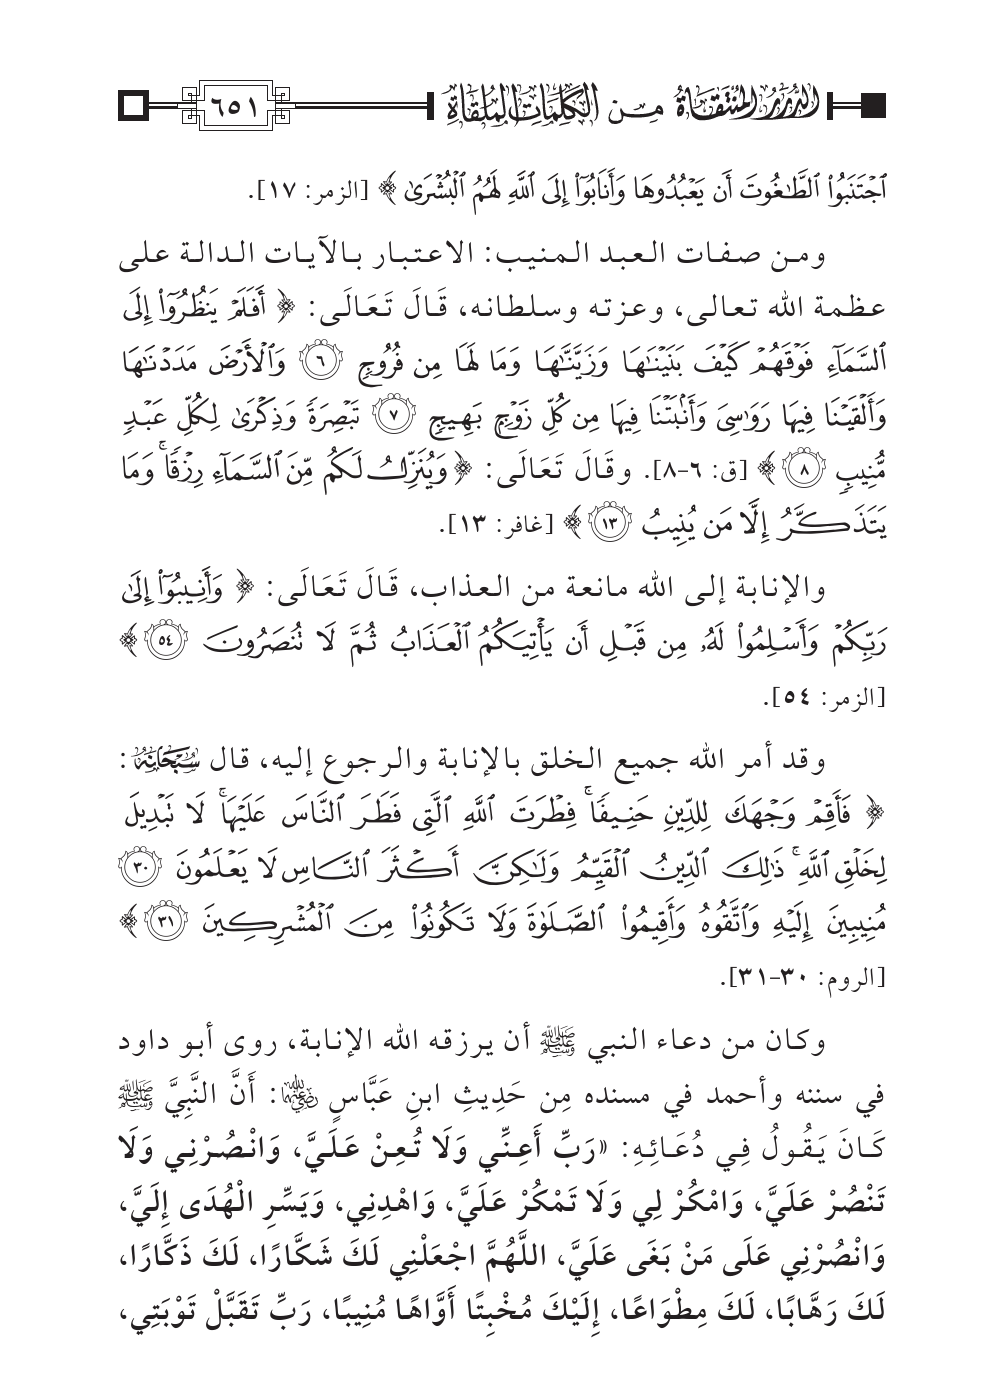 الدرر المنتقاة من الكلمات الملقاة ٦٥١
ٱجۡتَنَبُواْ ٱلطَّٰغُوتَ أَن يَعۡبُدُوهَا وَأَنَابُوٓاْ إِلَى ٱللَّهِ لَهُمُ ٱلۡبُشۡرَىٰ ﴾ [الزمر: ١٧].
ومن صفات العبد المنيب: الاعتبار بالآيات الدالة على
عظمة الله تعالى، وعزته وسلطانه، قَالَ تَعَالَى: ﴿ أَفَلَمۡ يَنظُرُوٓاْ إِلَى
ٱلسَّمَآءِ فَوۡقَهُمۡ كَيۡفَ بَنَيۡنَٰهَا وَزَيَّنَّٰهَا وَمَا لَهَا مِن فُرُوجٖ ٦ وَٱلۡأَرۡضَ مَدَدۡنَٰهَا
وَأَلۡقَيۡنَا فِيهَا رَوَٰسِيَ وَأَنۢبَتۡنَا فِيهَا مِن كُلِّ زَوۡجِۭ بَهِيجٖ ٧ تَبۡصِرَةٗ وَذِكۡرَىٰ لِكُلِّ عَبۡدٖ
مُّنِيبٖ ٨ ﴾ [ق: ٦-٨]. وقَالَ تَعَالَى: ﴿ وَيُنَزِّلُ لَكُم مِّنَ ٱلسَّمَآءِ رِزۡقٗاۚ وَمَا
يَتَذَكَّرُ إِلَّا مَن يُنِيبُ ١٣ ﴾ [غافر: ١٣].
والإنابة إلى الله مانعة من العذاب، قَالَ تَعَالَى: ﴿ وَأَنِيبُوٓاْ إِلَىٰ
رَبِّكُمۡ وَأَسۡلِمُواْ لَهُۥ مِن قَبۡلِ أَن يَأۡتِيَكُمُ ٱلۡعَذَابُ ثُمَّ لَا تُنصَرُونَ ٥٤ ﴾
[الزمر: ٥٤].
وقد أمر الله جميع الخلق بالإنابة والرجوع إليه، قال سُبْحَانَهُ:
﴿ فَأَقِمۡ وَجۡهَكَ لِلدِّينِ حَنِيفٗاۚ فِطۡرَتَ ٱللَّهِ ٱلَّتِي فَطَرَ ٱلنَّاسَ عَلَيۡهَاۚ لَا تَبۡدِيلَ
لِخَلۡقِ ٱللَّهِۚ ذَٰلِكَ ٱلدِّينُ ٱلۡقَيِّمُ وَلَٰكِنَّ أَكۡثَرَ ٱلنَّاسِ لَا يَعۡلَمُونَ ٣٠
مُنِيبِينَ إِلَيۡهِ وَٱتَّقُوهُ وَأَقِيمُواْ ٱلصَّلَوٰةَ وَلَا تَكُونُواْ مِنَ ٱلۡمُشۡرِكِينَ ٣١ ﴾
[الروم: ٣٠-٣١].
وكان من دعاء النبي ﷺ أن يرزقه الله الإنابة، روى أبو داود
في سننه وأحمد في مسنده مِن حَدِيثِ ابنِ عَبَّاسٍ رضي الله عنهما: أَنَّ النَّبِيَّ ﷺ
كَانَ يَقُولُ فِي دُعَائِهِ: «رَبِّ أَعِنِّي وَلَا تُعِنْ عَلَيَّ، وَانْصُرْنِي وَلَا
تَنْصُرْ عَلَيَّ، وَامْكُرْ لِي وَلَا تَمْكُرْ عَلَيَّ، وَاهْدِنِي، وَيَسِّرِ الْهُدَى إِلَيَّ،
وَانْصُرْنِي عَلَى مَنْ بَغَى عَلَيَّ، اللَّهُمَّ اجْعَلْنِي لَكَ شَكَّارًا، لَكَ ذَكَّارًا،
لَكَ رَهَّابًا، لَكَ مِطْوَاعًا، إِلَيْكَ مُخْبِتًا أَوَّاهًا مُنِيبًا، رَبِّ تَقَبَّلْ تَوْبَتِي،